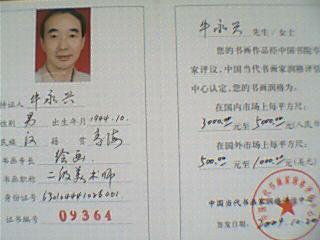 持证人 牛永兴
性别 男 出生年月 1944.10.
民族 汉 籍贯 青海
书画专长 绘画
书画职称 二级美术师
身份证号
证书编号 09364
牛永兴 先生/女士
您的书画作品经中国书院专
家评议,中国当代书画家润格评估
中心认定,您的书画润格为:
在国内市场上每平方尺:
3000.00 元至 5000.00 元(人民币
在国外市场上每平方尺:
500.00 元至 1000.00 元(美元
中国当代书画家润格评估中心
签发日期: